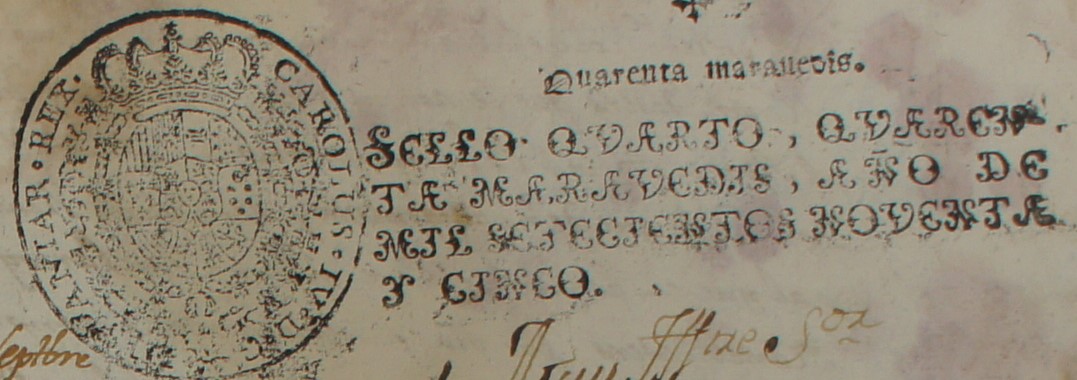 CAROLUS · IV · D · G · HISPANIAR · REX ·
Quarenta marauedis.
SELLO QVARTO, QVAREN-
TA MARAVEDIS, AÑO DE
MIL SETECIENTOS NOVENTA
Y CINCO.
Septbre